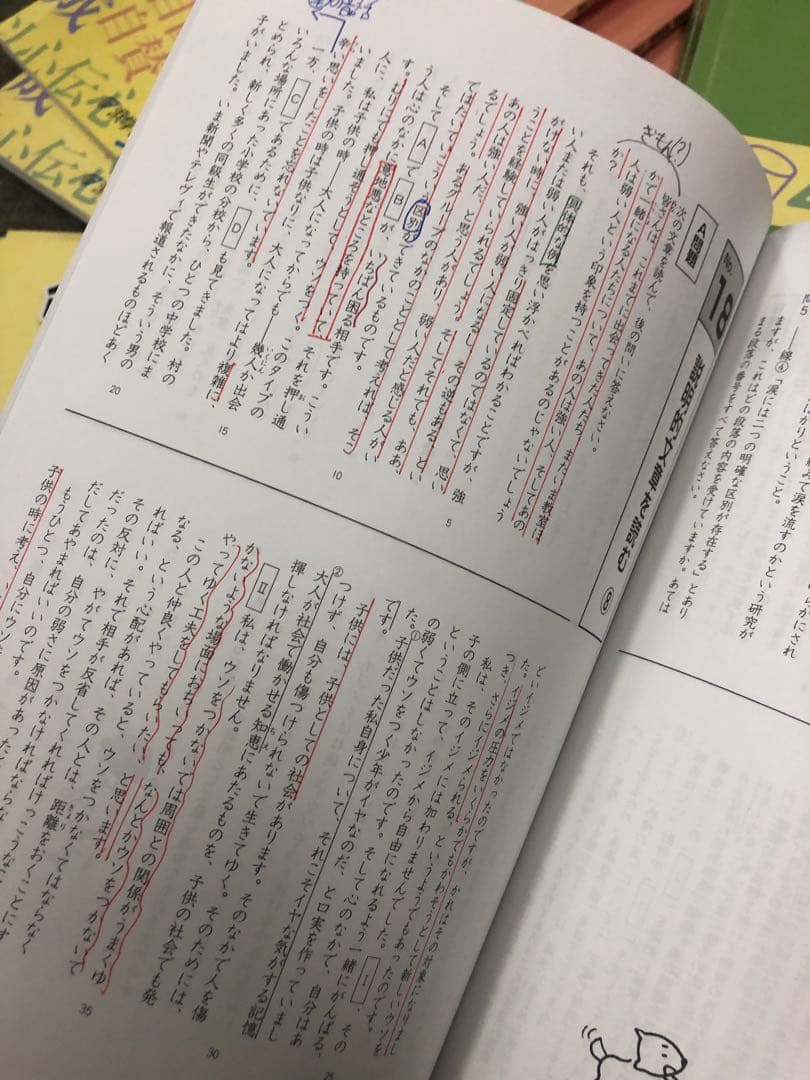 ぎもん(?)
No.
18
説明的文章を読む ⑧
A問題
次の文章を読んで、後の問いに答えなさい。
皆さんは、これまでに出会ってきた人たち、またいま教室
かで一緒になる人たちについて、あの人は強い人、そしてあの
人は弱い人という印象を持つことがあるのじゃないでしょう
か?
それも、具体的な例を思い浮かべればわかることですが、強
い人または弱い人がはっきり固定しているのではなくて、思い
がけない時に、強い人が弱い人になるし、その逆もある、とい
うことを経験していられるでしょう。そしてそれでも、ああ、
あの人は強い人だ、と思う人があり、弱い人だと感じる人がい
るでしょう。あるグループのなかのこととして考えれば、そこ
てはたいてい
そして、
う人は心のなかに
A
区別ができているものです。
B
が、いちばん困る相手です。こうい
人に、意地悪なところを持っていて、
す。むりにでも押し通そうとして、ウソをつく。それを押し通
いました。私は子供の時――大人になってからでも――幾人か出会
辛い思いをしたことを忘れないています。このタイプの
一方、子供の時は子供なりに、大人になってはより複雑に、
いろんな場所に
C
であるために、
D
も見てきました。村の
とめられ、新しく多くの同級生ができたなかに、そういう男の
子がいました。いま新聞やテレヴィで報道されるものほどあく
5
10
15
20
といイジメではなかったのですが、かれはその対象になりまし
た。イジメの圧力をいくらかでもかわそうとして新しいウソを
つき、さらにイジメられる、というようでもあったのです。
私は、そのイジメには加わりませんでした。
Ⅰ
、その
子の側に立って、イジメから自由になれるよう一緒にがんばる、
ということはしなかったのです。そして心のなかで、自分はあ
の弱くてウソをつく少年がイヤなのだ、と口実を作っていまし
た。①子供だった私自身について、それこそイヤな気がする記憶
です。
子供には、子供としての社会があります。そのなかで人を傷
つけず、自分も傷つけられないで生きてゆく。そのためには、
②大人が社会で働かせる知恵にあたるものを、子供の社会でも発
揮しなければなりません。
Ⅱ
私は、ウソをつかないでは周囲との関係がうまくゆ
かないような場面におちいっても、なんとかウソをつかないで
やってゆく工夫をしてもらいたい、と思います。
この人と仲良くやっていると、ウソをつかなくてはならなく
なる、という心配があれば、その人とは、距離をおくことにす
ればいい。それで相手が反省してくれればけっこうなことです
その反対に、やがてウソをつかなければならな
だったのは、自分の弱さに原因があった
だしてあやまればいいのです。
もうひとつ、自分に
子供の時に考え
25
30
35
問5
――線④「涙には二つの明確な区別が存在する」とあり
ますが、これはどの段落の内容を受けていますか。あては
まる段落の番号をすべて答えなさい。